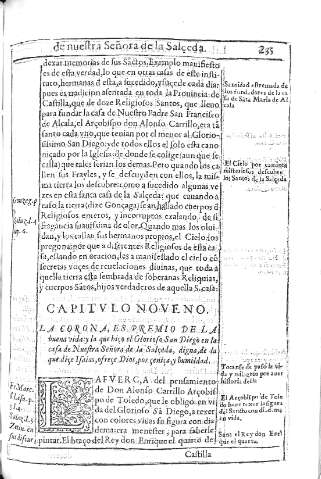 de nuestra Señora de la Salçeda. 235
dexar memorias de sus Sãctos. Exemplo manifiesto
es de esta verdad, lo que en otras casas de este insti-
tuto, hermanas dẽ esta, a sucedido, y suçede cada dia:
pues es tradicion asentada en toda la Prouincia de
Castilla, que de doze Religiosos Santos, que lleuo
para fundar la casa de Nuestro Padre San Francisco
de Alcala, el Arçobispo don Alonso Carrillo, era tã
santo cada vno, que tenian por el menor al Glorio-
sissimo San Diego: y de todos ellos el solo esta cano-
niçado por la Iglesia: de donde se colige
quales serian los demas. Pero quando los ca-
llen sus Frayles, y se descuyden con ellos, la misma
tierra los descubre: como a sucedido algunas ve-
zes en esta santa casa de la Salçeda: que cauando a
caso la tierra (dize Gonçaga) se an hallado cuerpos dẽ
Religiosos enteros, y incorruptos exalando, de si
fragancia suauissima de olor. Quando mas los oluí-
dan, y los callan sus hermanos propios, el Cielo
pregona: por que a diferentes Religiosos de esta ca-
sa, estando en oracion, les a manifestado el cielo cõ
secretas voçes de reuelaciones diuinas, que toda a-
quella tierra este sembrada de soberanas Reliquias,
y cuerpos Sãtos, hijos verdaderos de aquella S. casa.
CAPITVLO NOVENO.
LA CORONA, ES PREMIO DE LA
buena vida; y la que hiço el Glorioso San Diego en la
casa de Nuestra Señora de la Salçeda, digna, de la
que diçe Isaias, ofreçe Dios, por çeniza y humildad.
LA FVERÇA del pensamiento
de Don Alonso Carrillo Arçobis-
po de Toledo, que le obligo en vi-
da del Glorioso Sã Diego, a texer
con colores viuas su figura con dia-
dema era menester, para saberle
pintar. El braço del Rey don Enrique el quarto de
Castilla
Santidad afirmada de
los fund. dores de la ca
sa de Santa Maria de Al
cala
El Cielo por caminos
misteriosos descubre
los Santos de la Salçeda
Tocanse de paso la vi-
da y milagros por auer
historia della
El Arçobispo de Tole
do hizo texer la figura
del Santo con diadema
en vida.
Sana el Rey don Enri
que el quarto.